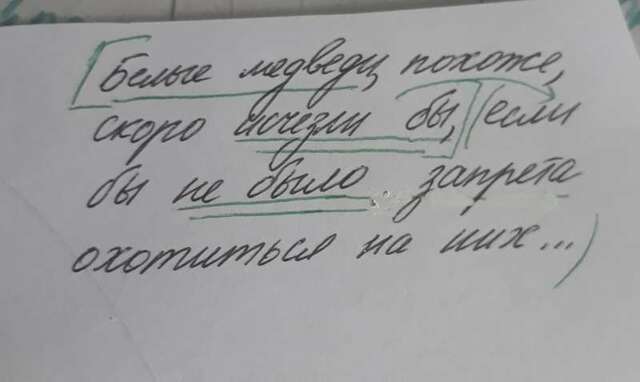 Белые медведи, похоже,
скоро исчезли бы, если
бы не было запрета
охотиться на них...